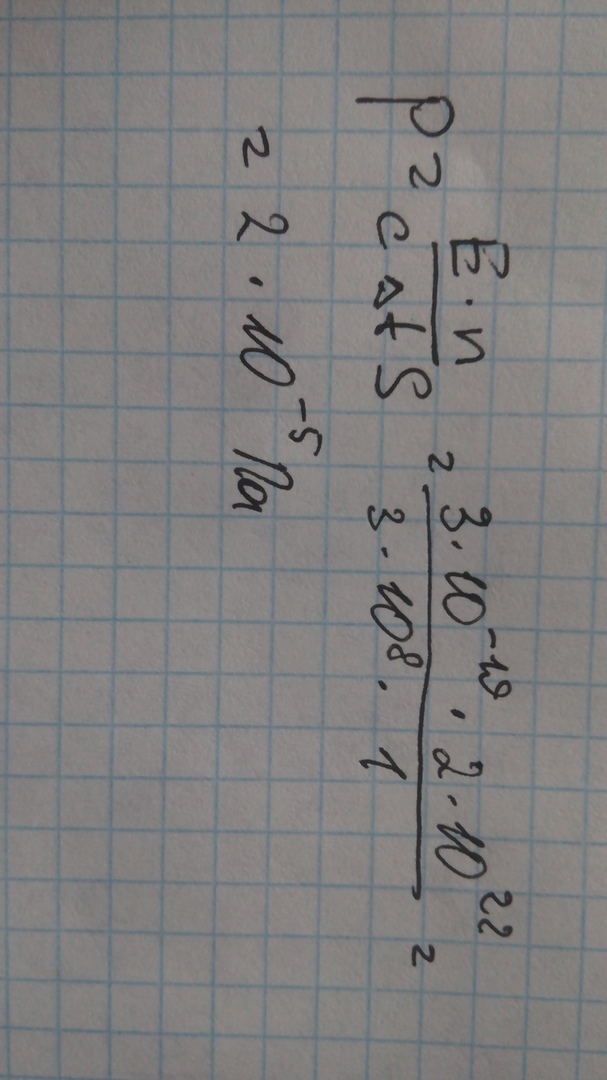 p = E·n / cΔtS = 3·10⁻¹⁹ · 2·10²² / 3·10⁸ · 1 =
= 2 · 10⁻⁵ Па